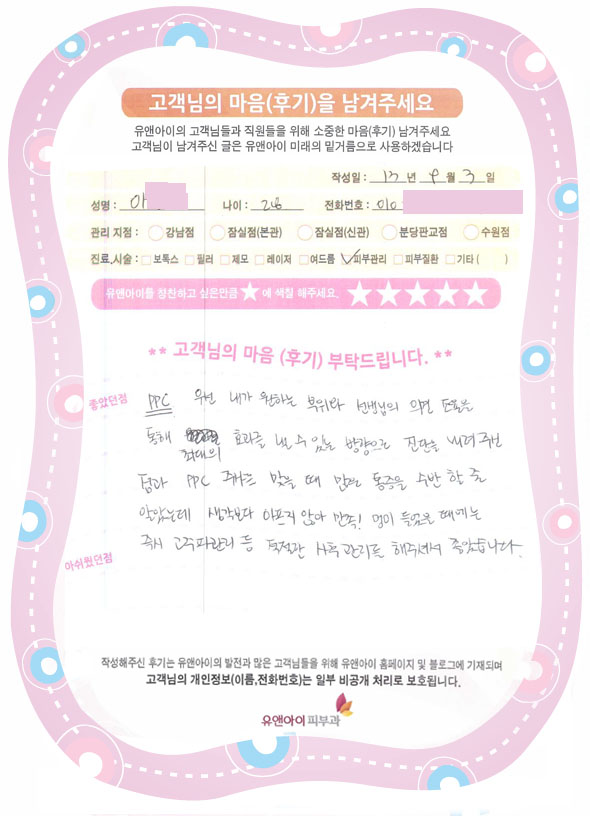 고객님의 마음(후기)을 남겨주세요
유앤아이의 고객님들과 직원들을 위해 소중한 마음(후기) 남겨주세요
고객님이 남겨주신 글은 유앤아이 미래의 밑거름으로 사용하겠습니다
작성일 : 년 9 월 3 일
성명 : 나이 : 전화번호 : 010
관리 지점 : 강남점 잠실점(본관) 잠실점(신관) 분당판교점 수원점
진료,시술 : 보톡스 필러 제모 레이저 여드름 피부관리 피부질환 기타 ( )
유앤아이를 칭찬하고 싶은만큼 ★ 에 색칠 해주세요. ★★★★★
** 고객님의 마음 (후기) 부탁드립니다. **
좋았던점
PPC 우선 내가 원하는 부위와 선생님의 의견 조율을
통해 최대의 효과를 낼 수 있는 방향으로 진단을 내려 주신
점과 PPC 주사를 맞을 때 많은 통증을 수반 할 줄
알았는데 생각보다 아프지 않아 만족! 멍이 들었을 때에는
즉시 고주파관리 등 적절한 사후관리를 해주셔서 좋았습니다.
아쉬웠던점
작성해주신 후기는 유앤아이의 발전과 많은 고객님들을 위해 유앤아이 홈페이지 및 블로그에 기재되며
고객님의 개인정보(이름,전화번호)는 일부 비공개 처리로 보호됩니다.
유앤아이피부과